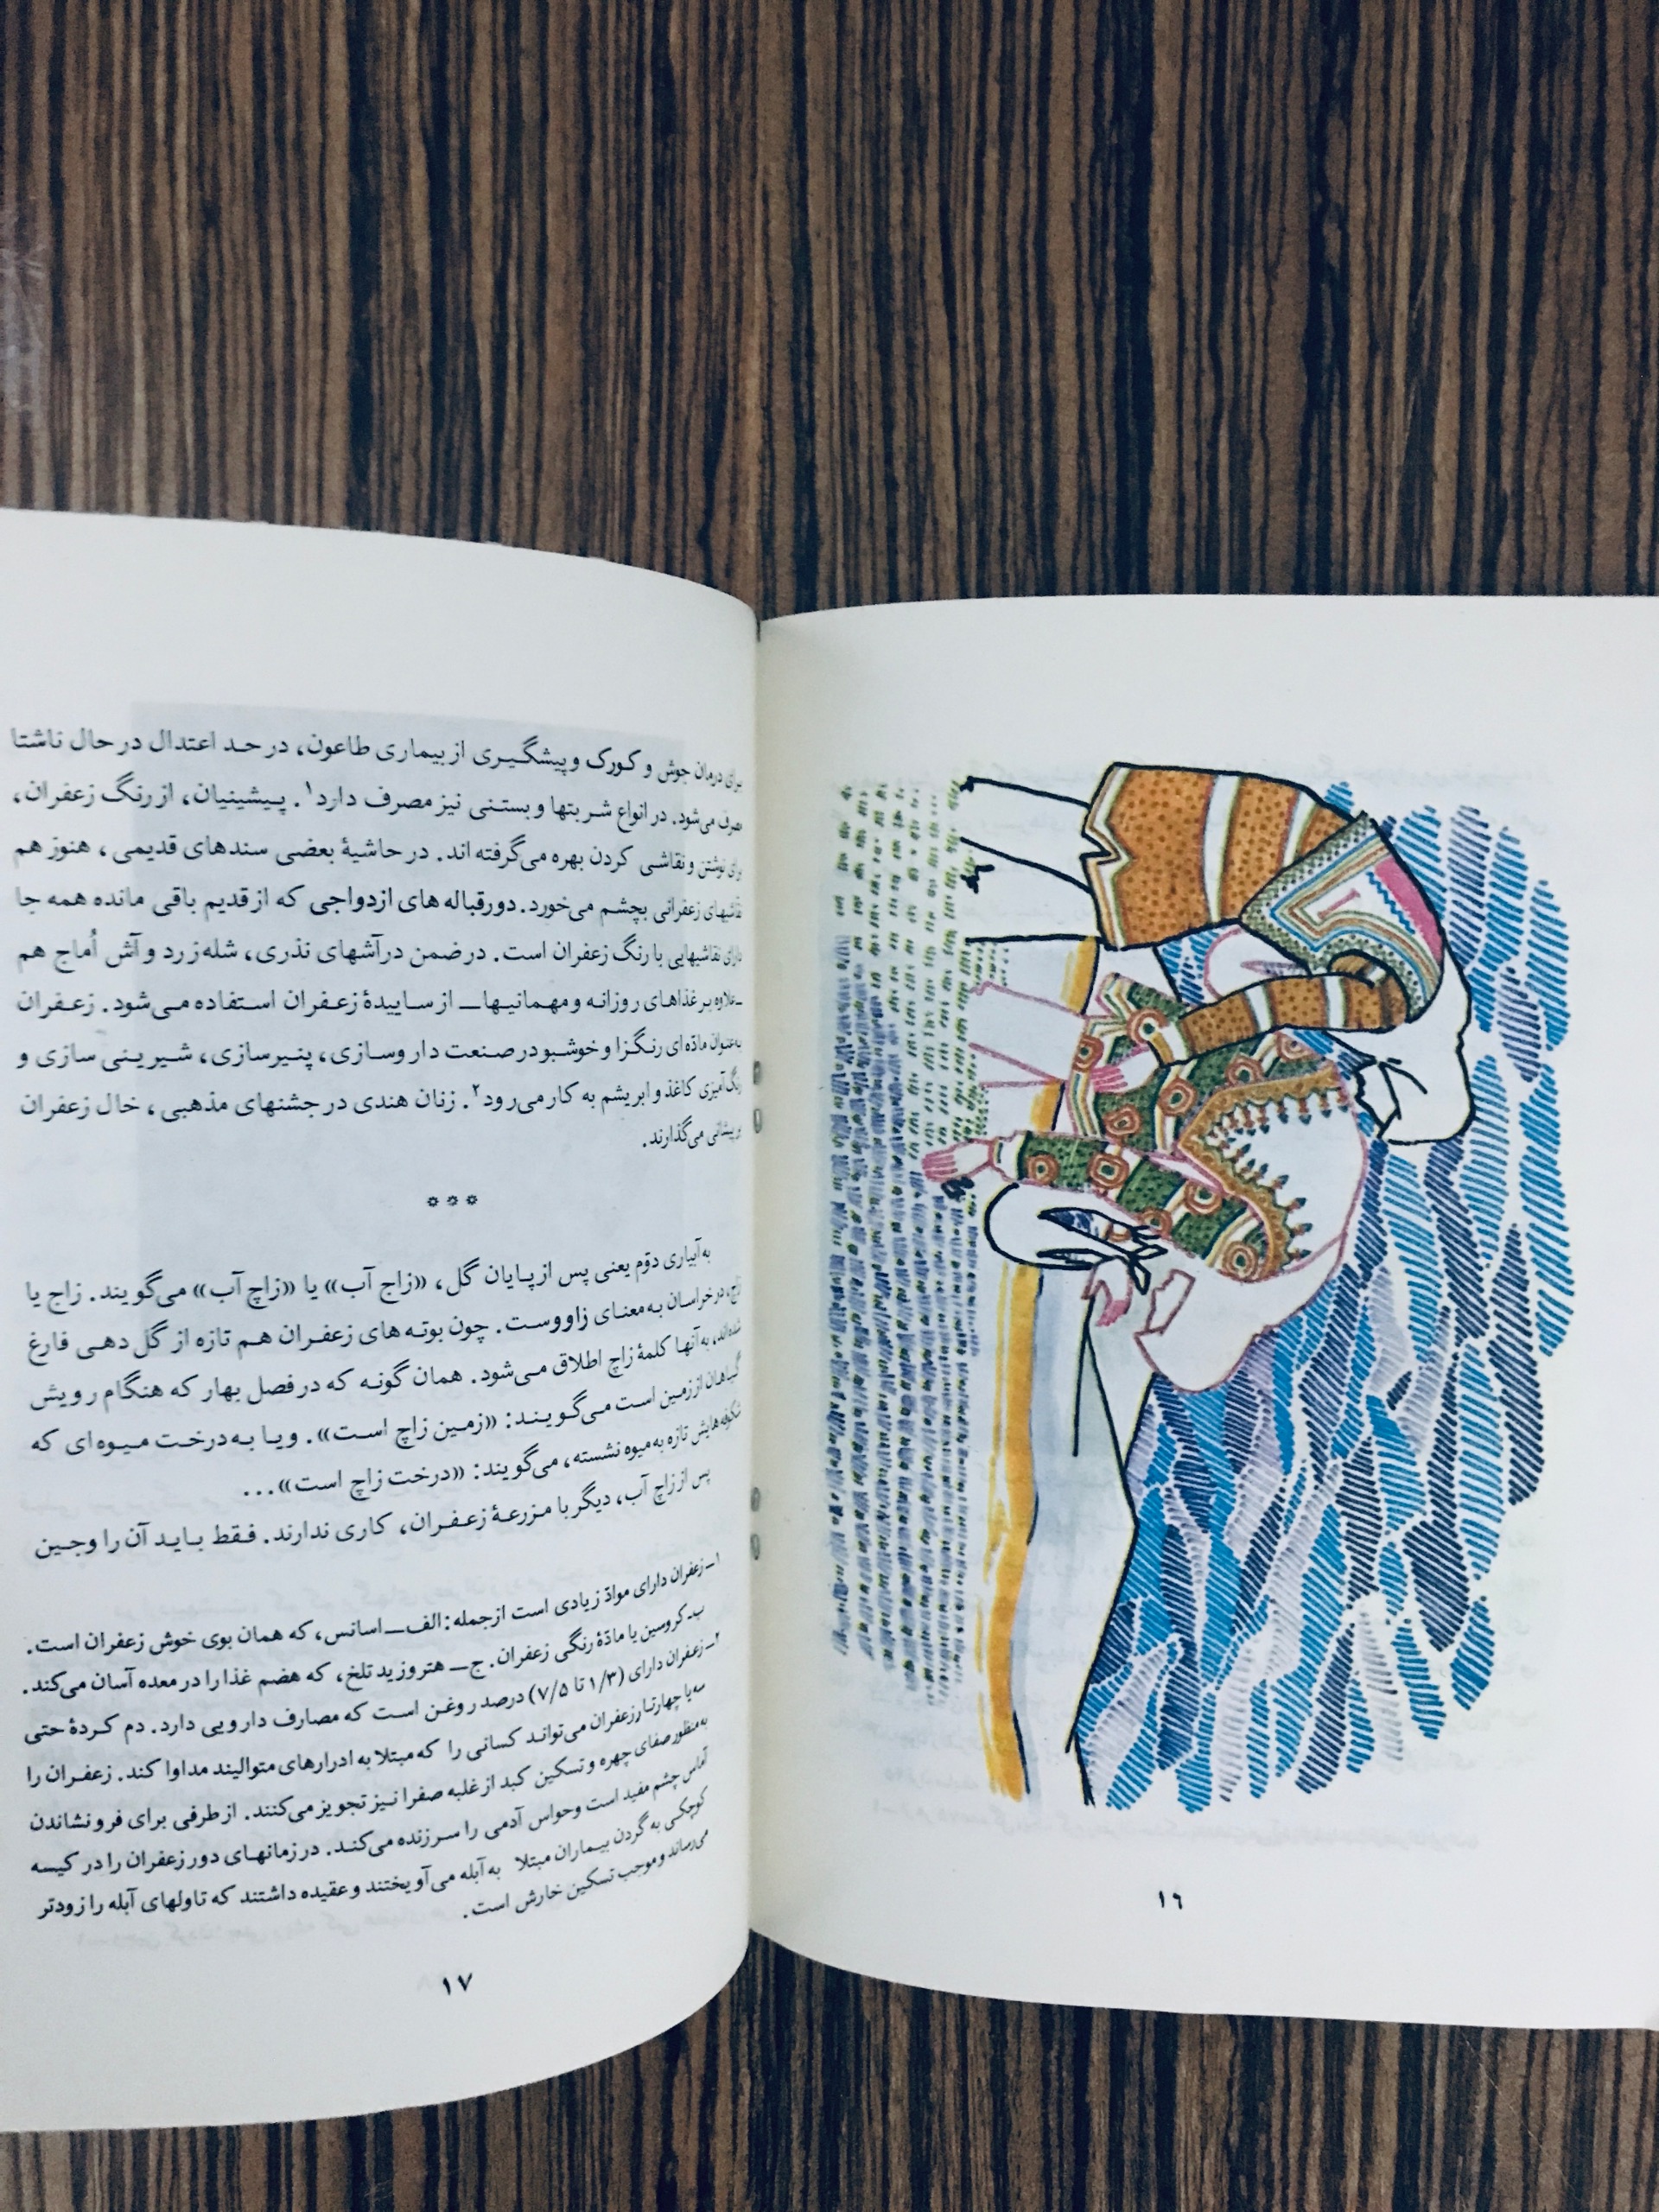 ۱۶
برای درمان جوش و کورک و پیشگیری از بیماری طاعون، در حد اعتدال در حال ناشتا
مصرف می‌شود. در انواع شربتها و بستنی نیز مصرف دارد۱. پیشینیان، از رنگ زعفران،
برای نوشتن و نقاشی کردن بهره می‌گرفته اند. در حاشیهٔ بعضی سندهای قدیمی، هنوز هم
نقاشیهای زعفرانی بچشم می‌خورد. دور قباله های ازدواجی که از قدیم باقی مانده همه جا
دارای نقاشیهایی با رنگ زعفران است. در ضمن در آشهای نذری، شله زرد و آش اُماج هم
ــ علاوه بر غذاهای روزانه و مهمانیها ــ از ساییدهٔ زعفران استفاده می‌شود. زعفران
به‌عنوان مادّه ای رنگزا و خوشبو در صنعت داروسازی، پنیرسازی، شیرینی سازی و
رنگ‌آمیزی کاغذ و ابریشم به کار می‌رود۲. زنان هندی در جشنهای مذهبی، خال زعفران
بر پیشانی می‌گذارند.
***
به آبیاری دوّم یعنی پس از پایان گل، «زاج آب» یا «زاچ آب» می‌گویند. زاج یا
زاچ، در خراسان به معنای زائوست. چون بوته های زعفران هم تازه از گل دهی فارغ
شده‌اند، به آنها کلمهٔ زاچ اطلاق می‌شود. همان گونه که در فصل بهار که هنگام رویش
گیاهان از زمین است می‌گویند: «زمین زاچ است». و یا به درخت میوه ای که
شکوفه‌هایش تازه به میوه نشسته، می‌گویند: «درخت زاچ است»...
پس از زاچ آب، دیگر با مزرعهٔ زعفران، کاری ندارند. فقط باید آن را وجین
۱ــ زعفران دارای موادّ زیادی است از جمله: الف ــ اسانس، که همان بوی خوش زعفران است.
ب ــ کروسین یا مادّهٔ رنگی زعفران. ج ــ هتروزید تلخ، که هضم غذا را در معده آسان می‌کند.
۲ــ زعفران دارای (۱/۳ تا ۷/۵) درصد روغن است که مصارف دارویی دارد. دم کردهٔ حتی
سه یا چهار تار زعفران می‌تواند کسانی را که مبتلا به ادرارهای متوالیند مداوا کند. زعفران را
به منظور صفای چهره و تسکین کبد از غلبه صفرا نیز تجویز می‌کنند. از طرفی برای فرونشاندن
آماس چشم مفید است و حواس آدمی را سرزنده می‌کند. در زمانهای دور زعفران را در کیسه
کوچکی به گردن بیماران مبتلا به آبله می‌آویختند و عقیده داشتند که تاولهای آبله را زودتر
می‌رساند و موجب تسکین خارش است.
۱۷